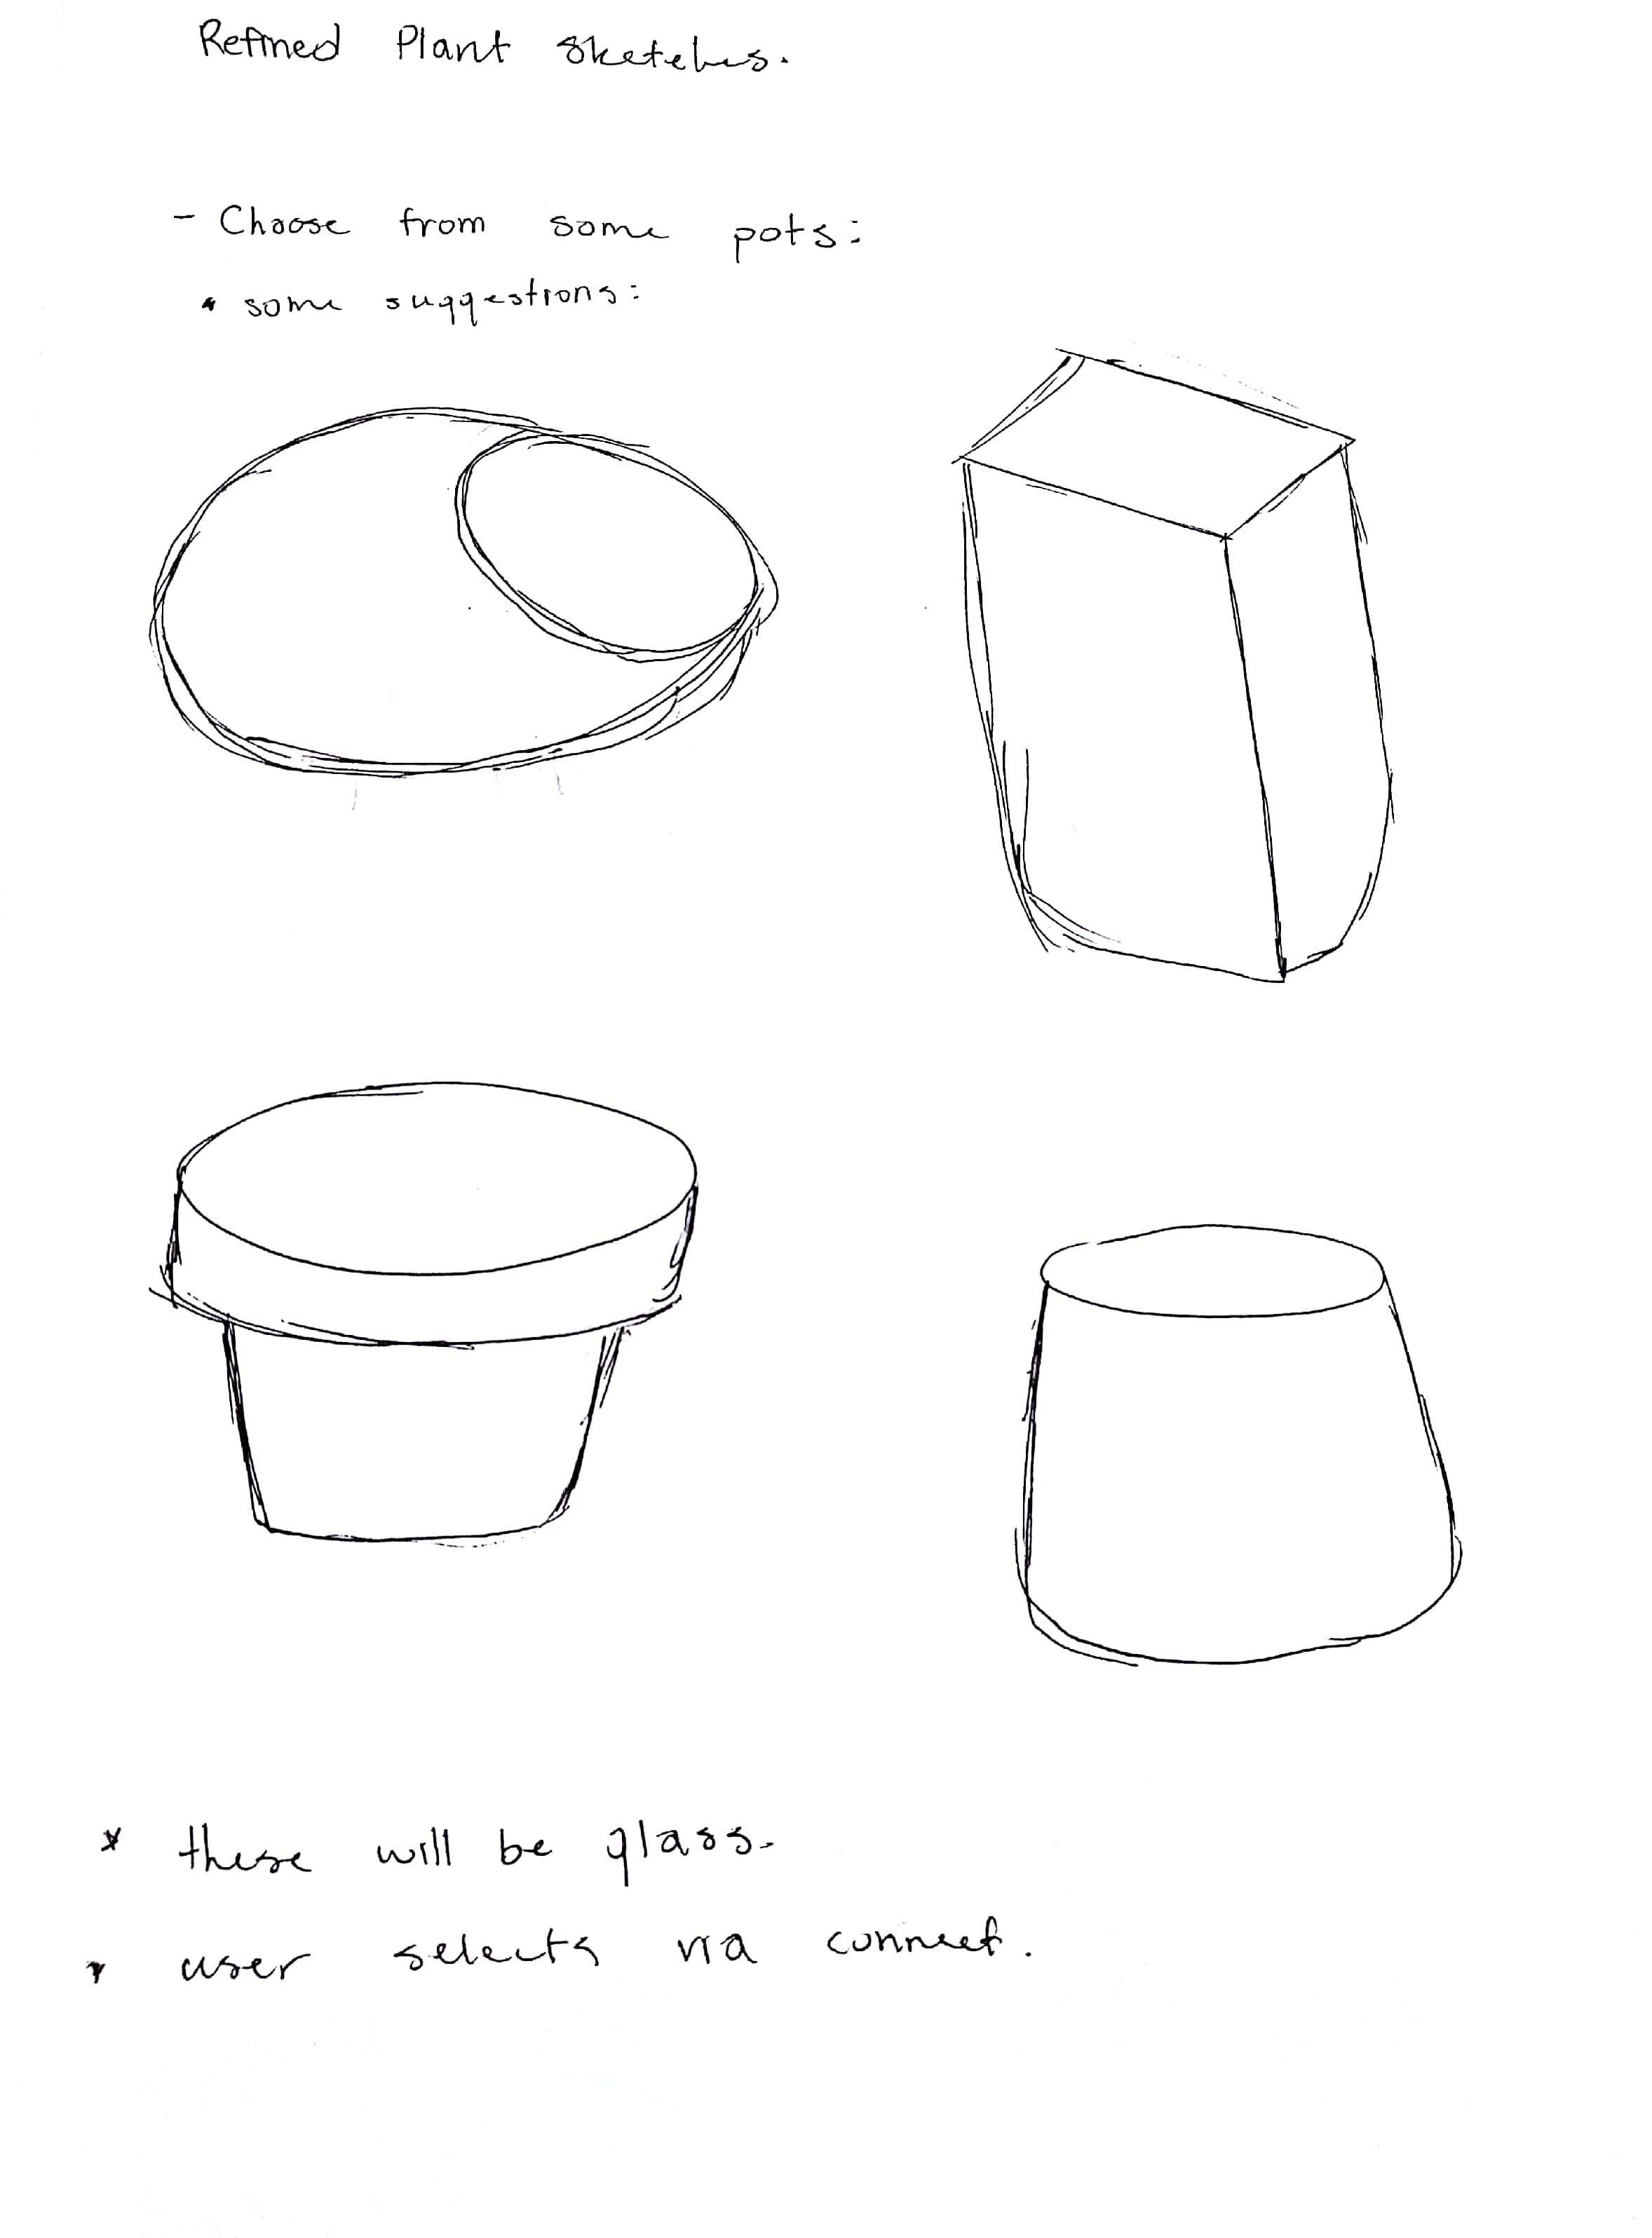 Refined Plant Sketches.
- Choose from some pots:
• some suggestions:
* these will be glass.
* user selects via connect.